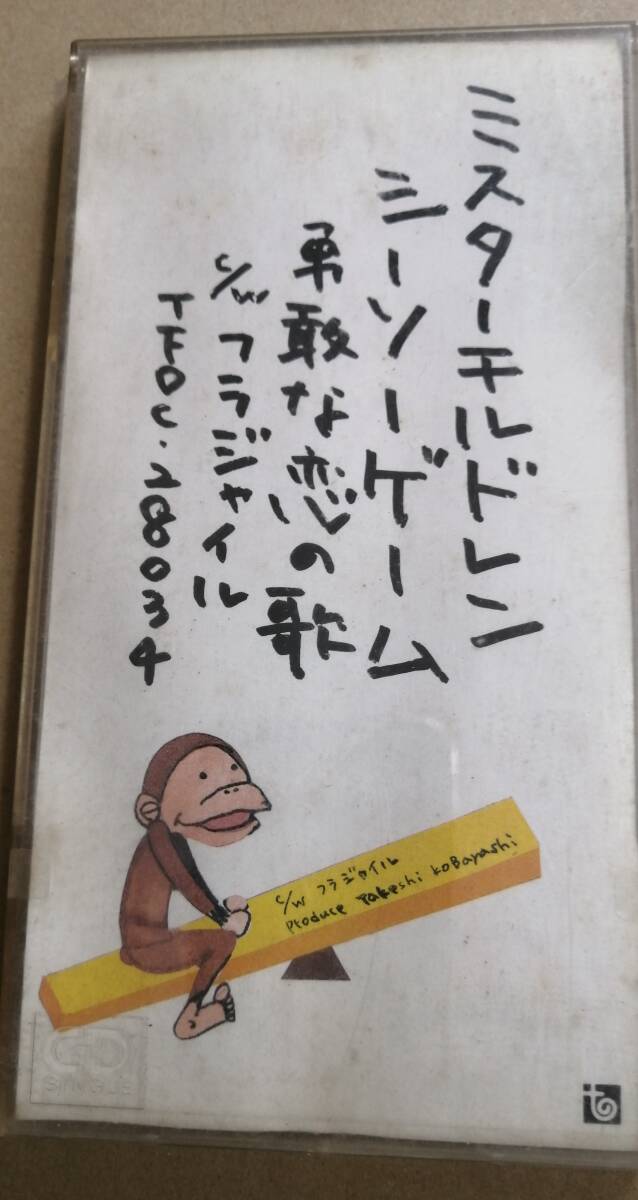 ミスターチルドレン
シーソーゲーム
勇敢な恋の歌
c/w フラジャイル
TFDC・28034
c/w フラジャイル
Produce Takeshi KoBayashi
CD
SINGLE